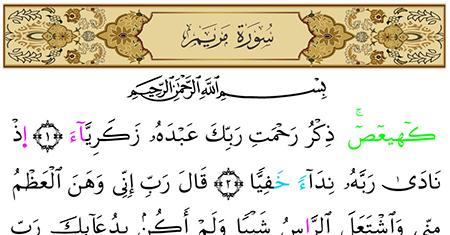 سُورَةُ مَرْيَمَ
بِسْمِ ٱللَّهِ ٱلرَّحْمَٰنِ ٱلرَّحِيمِ
كٓهيعٓصٓ ۚ ذِكْرُ رَحْمَتِ رَبِّكَ عَبْدَهُۥ زَكَرِيَّآءَ ﴿١﴾ إِذْ
نَادَىٰ رَبَّهُۥ نِدَآءً خَفِيًّا ﴿٢﴾ قَالَ رَبِّ إِنِّى وَهَنَ ٱلْعَظْمُ
مِنِّى وَٱشْتَعَلَ ٱلرَّاسُ شَيْبًا وَلَمْ أَكُنۢ بِدُعَآئِكَ رَبِّ